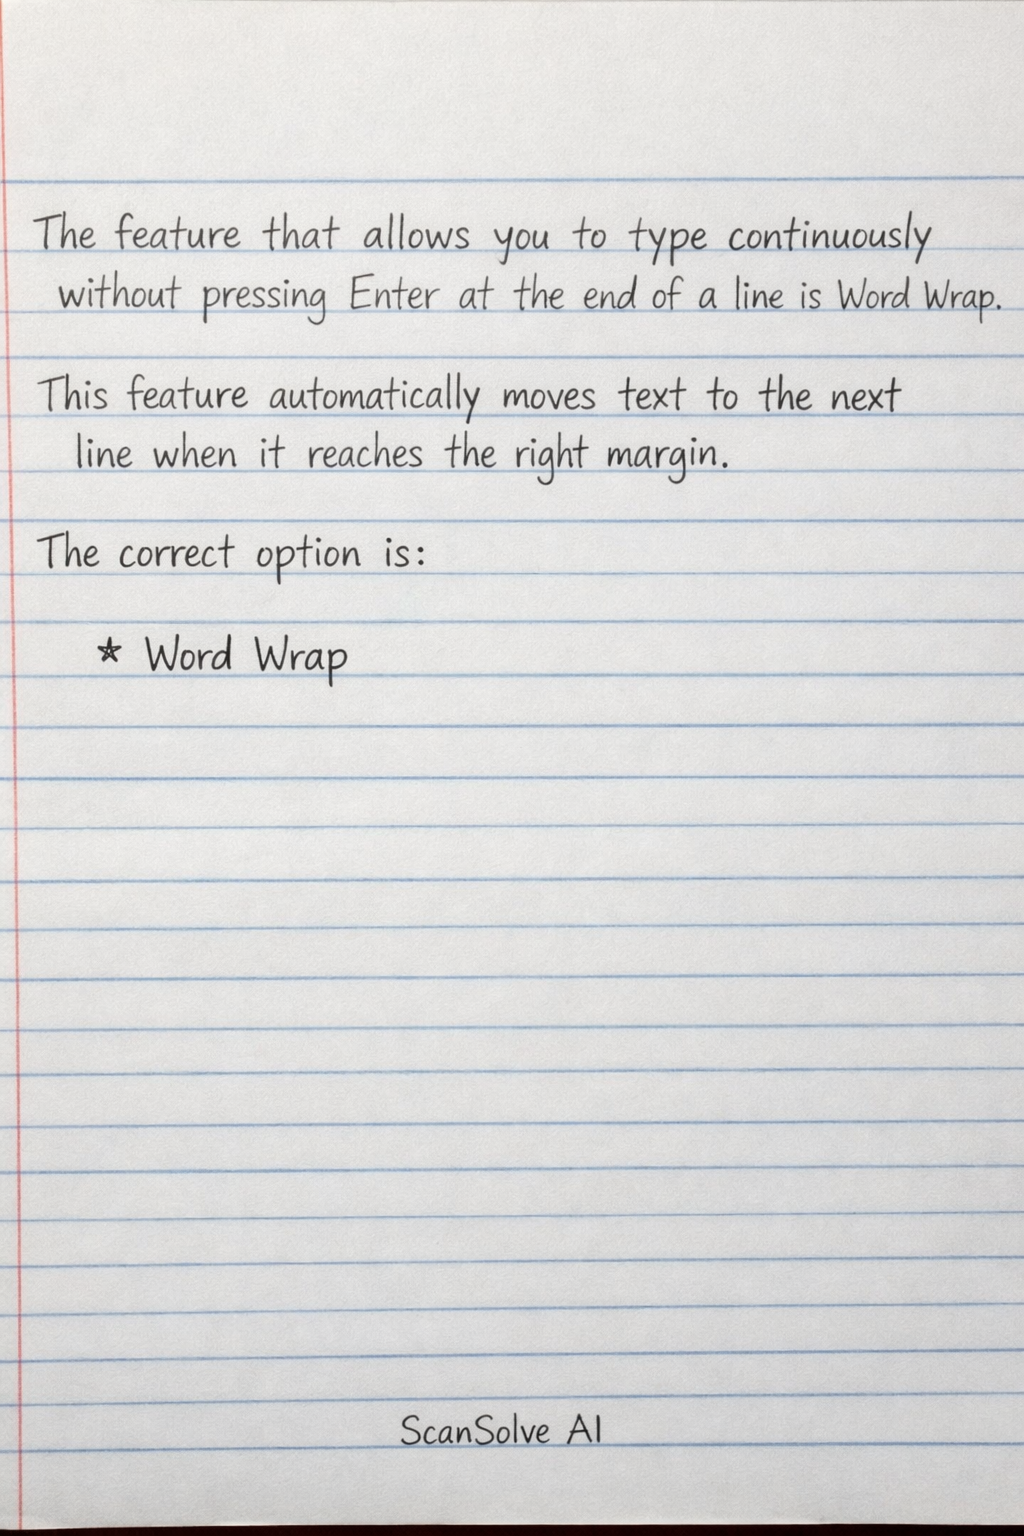 The feature that allows you to type continuously
without pressing Enter at the end of a line is Word Wrap.
This feature automatically moves text to the next
line when it reaches the right margin.
The correct option is:
* Word Wrap
ScanSolve AI